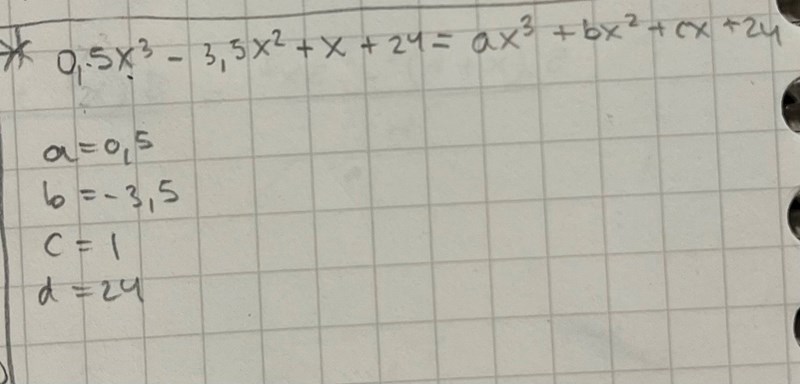 * 0,5x³ - 3,5x² + x + 24 = ax³ + bx² + cx + 24
a = 0,5
b = -3,5
c = 1
d = 24